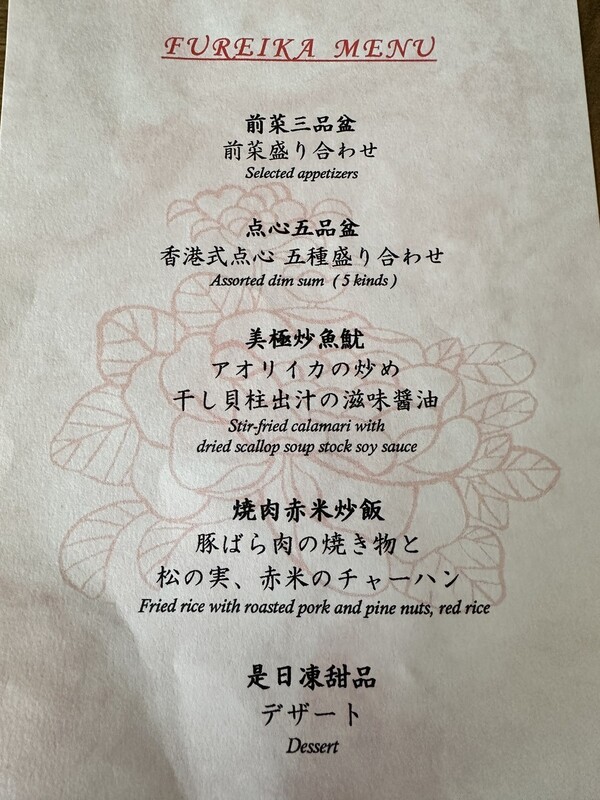 FUREIKA MENU
前菜三品盆
前菜盛り合わせ
Selected appetizers
点心五品盆
香港式点心 五種盛り合わせ
Assorted dim sum ( 5 kinds )
美極炒魚魷
アオリイカの炒め
干し貝柱出汁の滋味醤油
Stir-fried calamari with
dried scallop soup stock soy sauce
焼肉赤米炒飯
豚ばら肉の焼き物と
松の実、赤米のチャーハン
Fried rice with roasted pork and pine nuts, red rice
是日凍甜品
デザート
Dessert